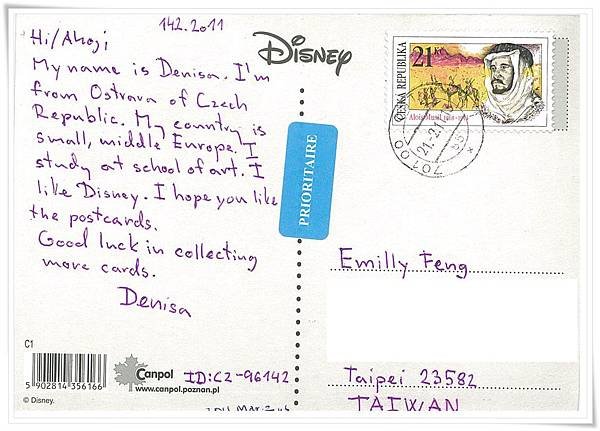 14 2. 2011
Hi/Ahoj
My name is Denisa. I'm
from Ostrava of Czech
Republic. My country is
small, middle Europe. I
study at school of art. I
like Disney. I hope you like
the postcards.
Good luck in collecting
more cards.
Denisa
C1
5 902814 356166
© Disney.
Canpol
www.canpol.poznan.pl
ID:CZ-96142
DISNEY
PRIORITAIRE
ČESKA REPUBLIKA
21 Kč
Alois Musil 1868-1944
70100
21.-2.11
Emilly Feng
Taipei 23582
TAIWAN